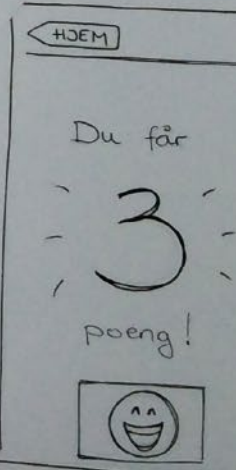 HJEM
Du får
3
poeng!